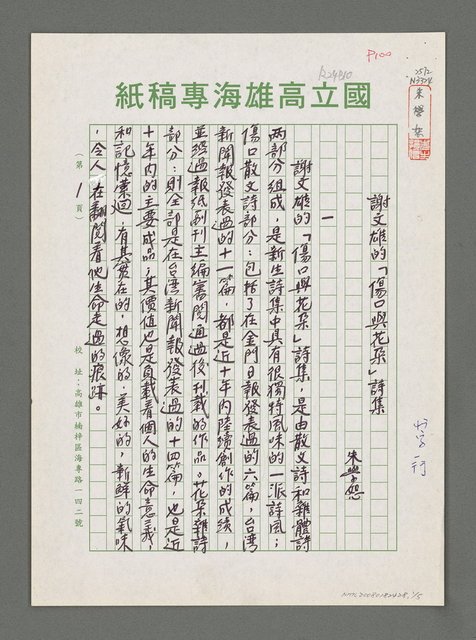 P100
2512
國立高雄海專稿紙
謝文雄的「傷口與花朵」詩集
朱學恕
一
謝文雄的「傷口與花朵」詩集，是由散文詩和雜體詩
兩部分組成，是新生詩集中具有很獨特風味的一派詩風；
傷口散文詩部分：包括了在金門日報發表過的六篇，台灣
新聞報發表過的十一篇，都是近十年內陸續創作的成績，
並經過報紙副刊主編審閱通過後刊載的作品。花朵雜詩
部分：則全部是在台灣新聞報發表過的十四篇，也是近
十年內的主要成品；其價值也是負載着個人的生命意義，
和記憶縈迴，有其實在的，想像的，美好的，新鮮的氣味
，令人在翻閱看他生命走過的痕跡。
（第 1 頁）
校址：高雄市楠梓區海專路一四二號